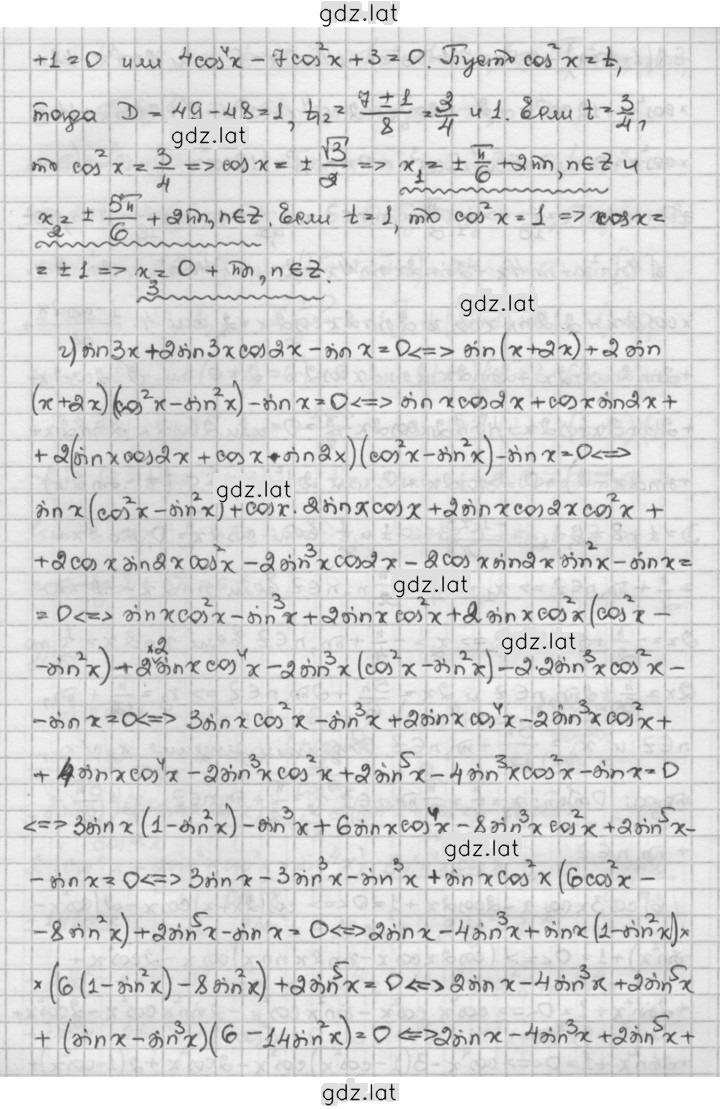 gdz.lat
+1=0 или 4cos⁴x − 7cos²x + 3 = 0. Пусть cos²x = t,
тогда D = 49 − 48 = 1, t₁,₂ = (7 ± 1)/8 = 3/4 и 1. Если t = 3/4,
gdz.lat
то cos²x = 3/4 => cos x = ± √3/2 => x₁ = ± π/6 + 2πn, n∈Z и
x₂ = ± 5π/6 + 2πn, n∈Z. Если t = 1, то cos²x = 1 => cos x =
= ± 1 => x₃ = 0 + πn, n∈Z.
gdz.lat
г) sin 3x + 2sin 3x cos 2x − sin x = 0 <=> sin(x+2x) + 2 sin
(x+2x)(cos²x − sin²x) − sin x = 0 <=> sin x cos 2x + cos x sin 2x +
+ 2(sin x cos 2x + cos x · sin 2x)(cos²x − sin²x) − sin x = 0 <=>
gdz.lat
sin x (cos²x − sin²x) + cos x · 2sin x cos x + 2sin x cos 2x cos²x +
+ 2cos x sin 2x cos²x − 2sin³x cos 2x − 2cos x sin 2x sin²x − sin x =
gdz.lat
= 0 <=> sin x cos²x − sin³x + 2sin x cos²x + 2 sin x cos²x (cos²x −
gdz.lat
− sin²x) + 2·2 sin x cos⁴x − 2sin³x (cos²x − sin²x) − 2·2sin³x cos²x −
− sin x = 0 <=> 3sin x cos²x − sin³x + 2sin x cos⁴x − 2sin³x cos²x +
+ 4sin x cos⁴x − 2sin³x cos²x + 2sin⁵x − 4sin³x cos²x − sin x = 0
<=> 3sin x (1 − sin²x) − sin³x + 6sin x cos⁴x − 8sin³x cos²x + 2sin⁵x −
gdz.lat
− sin x = 0 <=> 3sin x − 3sin³x − sin³x + sin x cos²x (6cos²x −
− 8sin²x) + 2sin⁵x − sin x = 0 <=> 2sin x − 4sin³x + sin x (1 − sin²x) ×
× (6(1 − sin²x) − 8sin²x) + 2sin⁵x = 0 <=> 2sin x − 4sin³x + 2sin⁵x
+ (sin x − sin³x)(6 − 14sin²x) = 0 <=> 2sin x − 4sin³x + 2sin⁵x +
gdz.lat